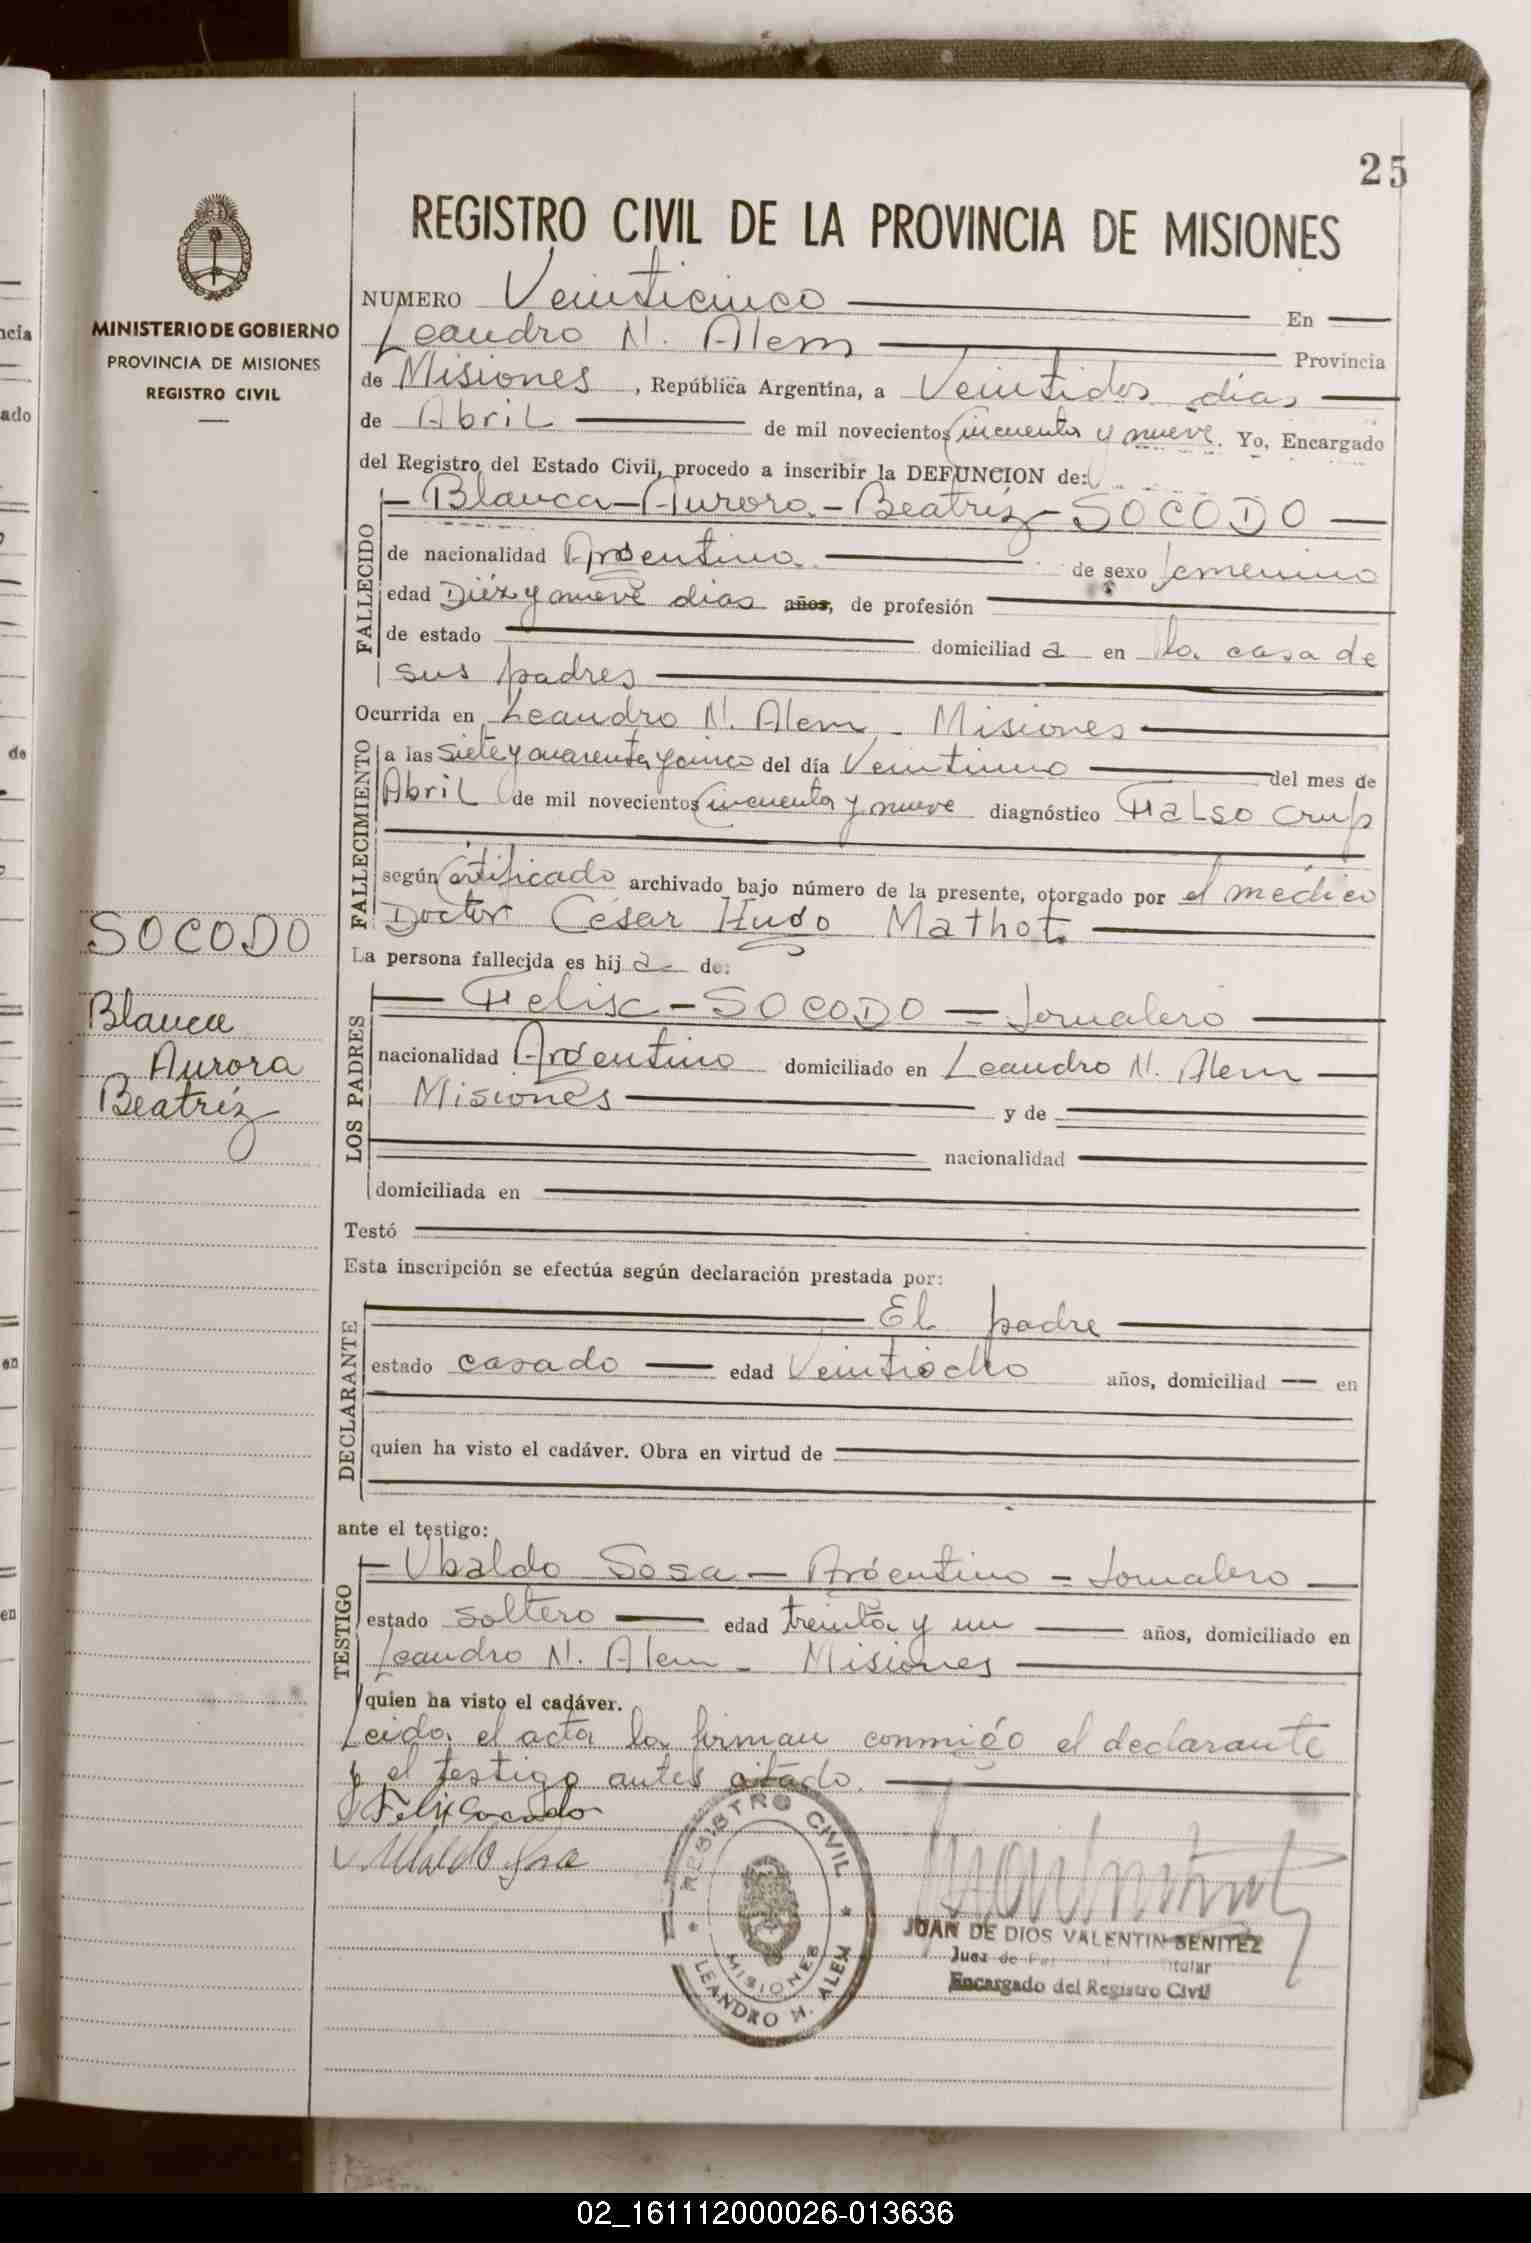 25
REGISTRO CIVIL DE LA PROVINCIA DE MISIONES
MINISTERIO DE GOBIERNO
PROVINCIA DE MISIONES
REGISTRO CIVIL
NUMERO Veinticinco En
Leandro N. Alem Provincia
de Misiones, República Argentina, a Veintidos dias
de Abril de mil novecientos cincuenta y nueve. Yo, Encargado
del Registro del Estado Civil, procedo a inscribir la DEFUNCION de:
FALLECIDO
Blanca-Aurora-Beatríz-SOCODO
de nacionalidad Argentina de sexo femenino
edad Diéz y nueve dias años, de profesión
de estado domiciliad a en la casa de
sus padres
Ocurrida en Leandro N. Alem - Misiones
FALLECIMIENTO
a las siete y cuarenta y cinco del día Veintiuno del mes de
Abril de mil novecientos cincuenta y nueve diagnóstico Falso Crup
según Certificado archivado bajo número de la presente, otorgado por el médico
Doctor César Hugo Mathot.
La persona fallecida es hij a de:
SOCODO
Blanca
Aurora
Beatríz
LOS PADRES
Felix - SOCODO = Jornalero
nacionalidad Argentino domiciliado en Leandro N. Alem
Misiones y de
nacionalidad
domiciliada en
Testó
Esta inscripción se efectúa según declaración prestada por:
DECLARANTE
El padre
estado casado edad Veintiocho años, domiciliad en
quien ha visto el cadáver. Obra en virtud de
ante el testigo:
TESTIGO
Ubaldo Sosa - Argentino = Jornalero
estado soltero edad treinta y un años, domiciliado en
Leandro N. Alem - Misiones
quien ha visto el cadáver.
Leida el acta la firman conmigo el declarante
y el testigo antes citado.
Felix Socodo
Ubaldo Sosa
REGISTRO CIVIL
MISIONES
LEANDRO N. ALEM
JUAN DE DIOS VALENTIN BENITEZ
Juez de Titular
Encargado del Registro Civil
02_161112000026-013636